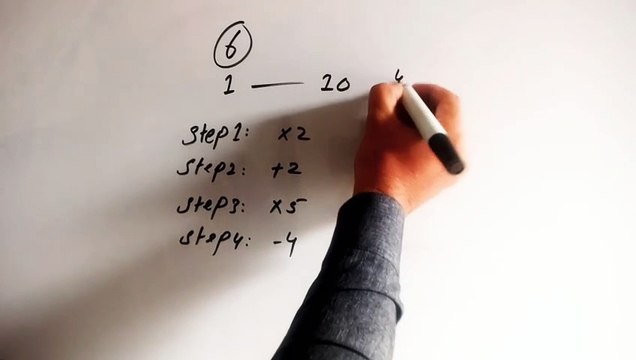 6
1 — 10
Step1: ×2
Step2: +2
Step3: ×5
Step4: -4